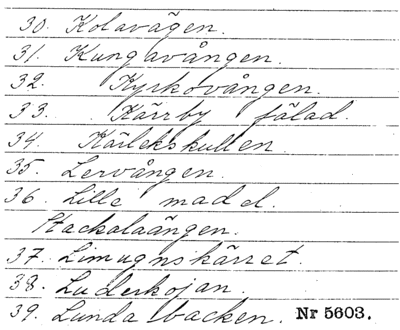 30. Kolavägen.
31. Kungavången.
32. Kyrkovången.
33. Kärrby fälad.
34. Kärlekskullen
35. Lervången.
36. Lille madel.
Stackalaängen.
37. Limugnskärret
38. Luderkojan.
39. Lunda backen. Nr 5603.